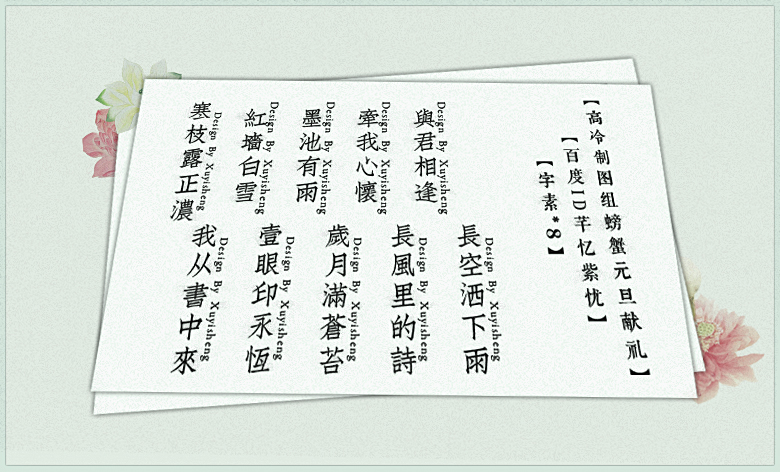 【高冷制图组螃蟹元旦献礼】
【百度ID芊忆紫忧】
【字素*8】
與君相逢
Design By Xuyisheng
長空洒下雨
Design By Xuyisheng
牽我心懷
Design By Xuyisheng
長風里的詩
Design By Xuyisheng
墨池有雨
Design By Xuyisheng
歲月滿蒼苔
Design By Xuyisheng
紅墻白雪
Design By Xuyisheng
壹眼印永恆
Design By Xuyisheng
寒枝露正濃
Design By Xuyisheng
我从書中來
Design By Xuyisheng